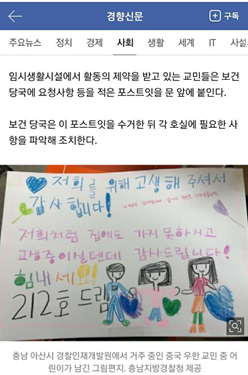 경향신문
+ 구독
주요뉴스 정치 경제 사회 생활 세계 IT 사설
임시생활시설에서 활동의 제약을 받고 있는 교민들은 보건
당국에 요청사항 등을 적은 포스트잇을 문 앞에 붙인다.
보건 당국은 이 포스트잇을 수거한 뒤 각 호실에 필요한 사
항을 파악해 조치한다.
저희를 위해 고생해 주셔서
감사합니다!
저희처럼 집에도 가시 못하시고
고생 중이실텐데 감사드립니다!
힘내세요!
212호 드림
충남 아산시 경찰인재개발원에서 거주 중인 중국 우한 교민 중 어
린이가 남긴 그림편지. 충남지방경찰청 제공